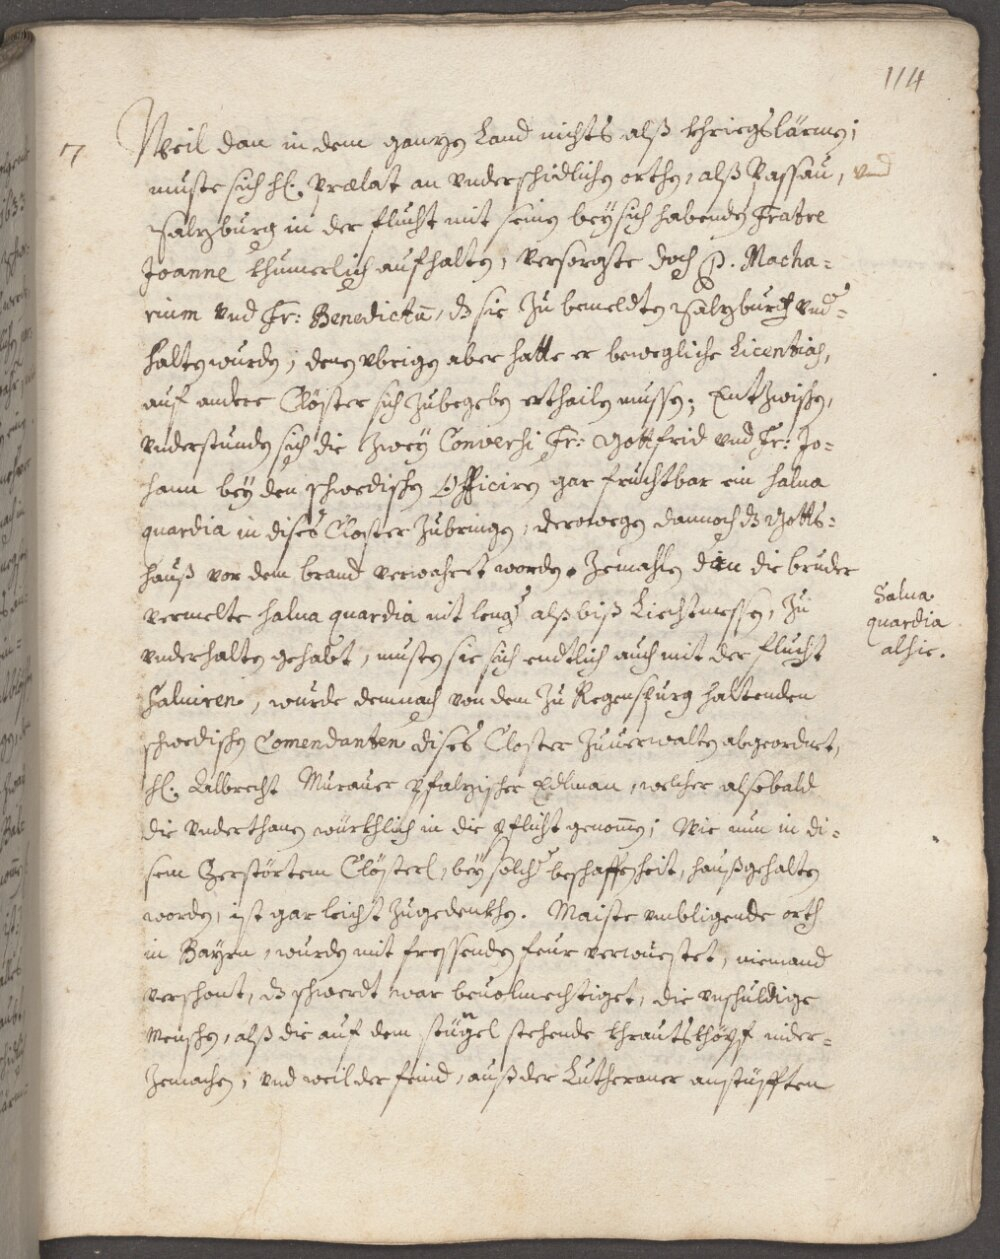 114
7 Weil dan in dem ganzen Land nichts alß khriegslärmen;
muste sich hl: Prælat an vnderschidlichen orthen, alß Passau, vnd
Salzburg in der flucht mit seinen bey sich habenden Fratre
Joanne khumerlich aufhalten, versorgte doch P. Macha=
rium vnd Fr: Benedictū, dz sie zu bemeldten Salzburg vnd=
halten wurden; denen vbrigen aber hatte er bewegliche Licentias,
auf andere Clöster sich zubegeben erthailen mussen; Entzwischen,
vnderstunden sich die zwey Conversi Fr: Gottfrid vnd Fr: Jo=
hann bey den schwedischen Officiren gar fruchtbar ein salua
quardia in dises Closter zubringen, derowegen dannoch dz Gotts=
hauß vor dem brand verwahret worden. Zemahlen dan die brueder
vermelte salua quardia nit leng alß biß Liechtmessen, zu
vnderhalten gehabt, musten sie sich endtlich auch mit der flucht
salviren, wurde demnach von dem zu Regenspurg haltenden
schwedischen Comendanten dises Closter zuuerwalten abgeordnet,
hl: Albrecht Murauer pfalzischer Edlman, welcher alsobald
die vnderthanen würkhlich in die pflicht genom̄en; Wie nun in di=
sem Zerstörtem Clösterl, bey solch beschaffenheit, haußgehalten
worden, ist gar leicht zugedenkhen. Maiste umbligende orth
in Bayrn, wurden mit fressenden feur verwuestet, niemand
verschont, dz schwerdt war beuolmechtiget, die vnschuldige
Menschen, alß die auf dem stängel stehende khrautskhöpf nider=
zemachen; vnd weil der feind, auß der Lutheraner anstüfften
Salua
quardia
alhie.